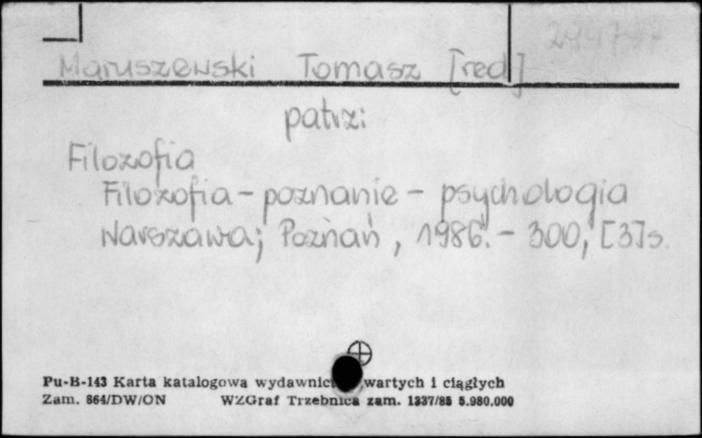 Maruszewski Tomasz [red]
patrz:
Filozofia
Filozofia - poznanie - psychologia
Warszawa; Poznań, 1986. - 300, [3] s.
Pu-B-143 Karta katalogowa wydawnic wartych i ciągłych
Zam. 864/DW/ON WZGraf Trzebnica zam. 1337/85 5.980.000